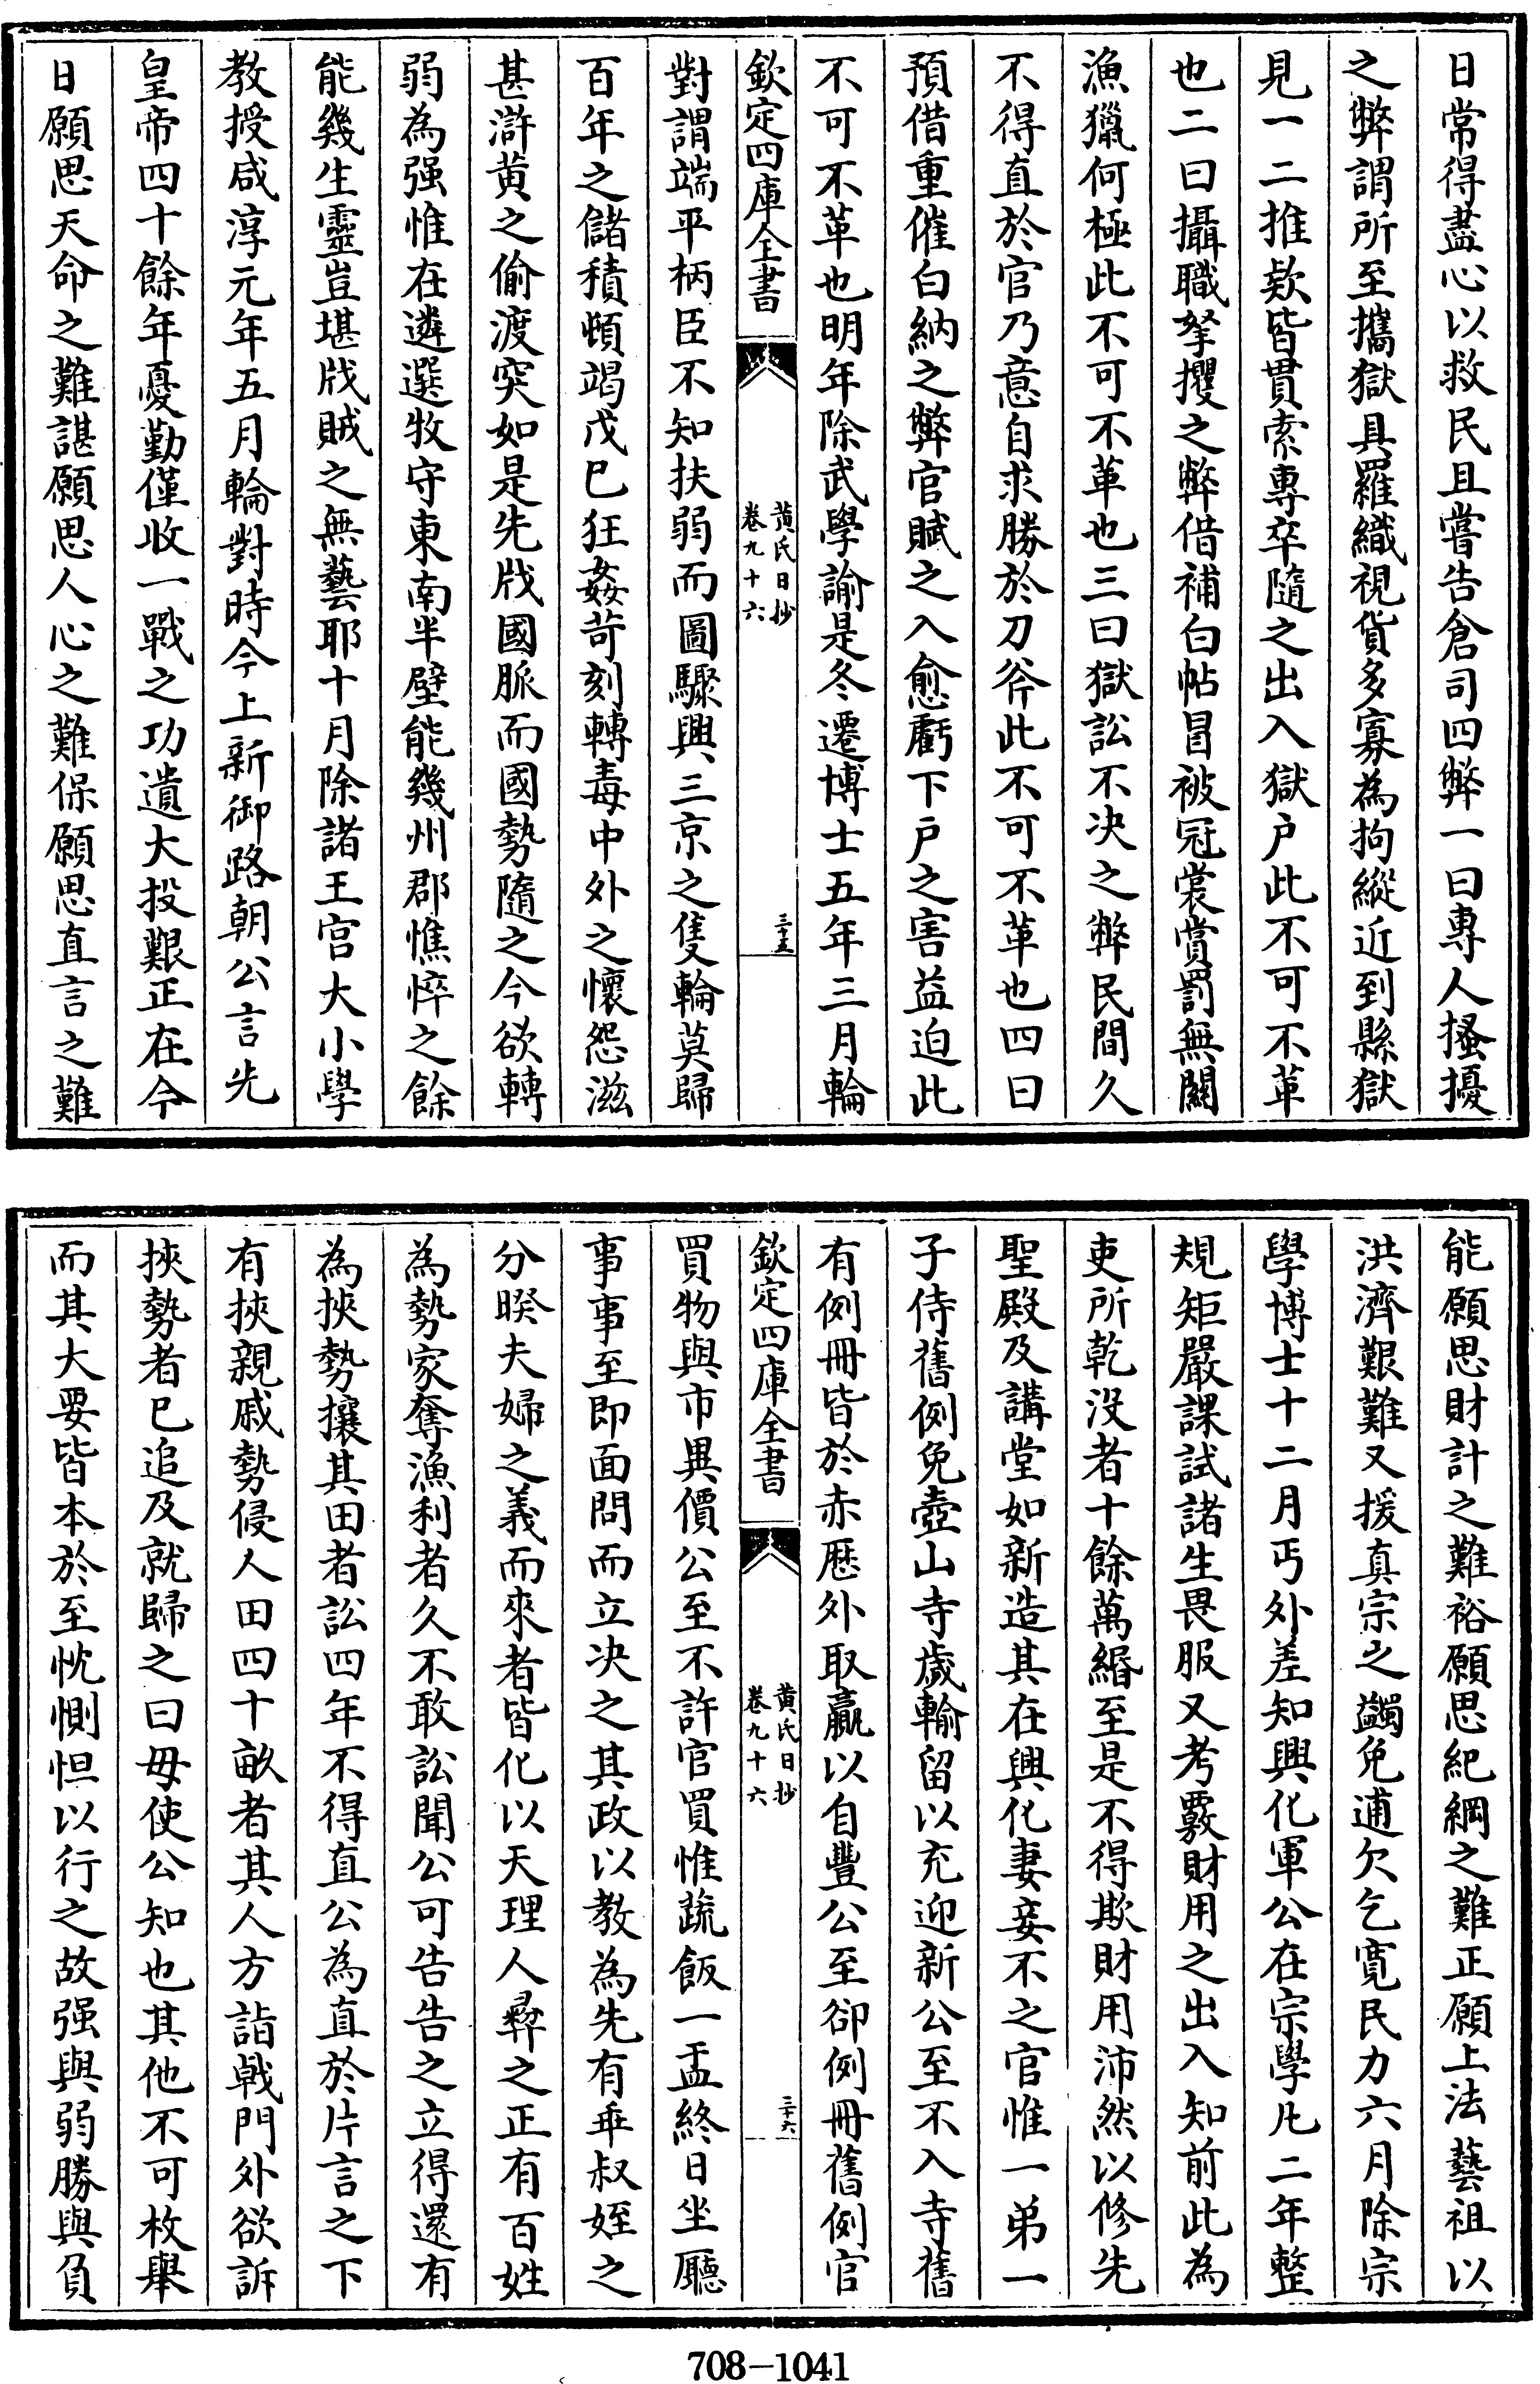 日常得盡心以救民且嘗告倉司四弊一曰專人搔擾
之弊謂所至攜獄具羅織視貨多寡為拘縱近到縣獄
見一二推欵皆貫索專卒隨之出入獄户此不可不革
也二曰攝職拏攫之弊借補白帖冒被冠裳賞罰無關
漁獵何極此不可不革也三曰獄訟不决之弊民間久
不得直於官乃意自求勝於刀斧此不可不革也四曰
預借重催白納之弊官賦之入愈虧下户之害益迫此
不可不革也明年除武學諭是冬遷博士五年三月輪
欽定四庫全書
黄氏日抄
卷九十六
三十五
對謂端平柄臣不知扶弱而圖驟興三京之隻輪莫歸
百年之儲積頓竭戊巳狂姦苛刻轉毒中外之懷怨滋
甚滸黄之偷渡突如是先戕國脈而國勢隨之今欲轉
弱為强惟在遴選牧守東南半壁能幾州郡憔悴之餘
能幾生靈豈堪戕賊之無藝耶十月除諸王宫大小學
教授咸淳元年五月輪對時今上新御路朝公言先
皇帝四十餘年憂勤僅收一戰之功遺大投艱正在今
日願思天命之難諶願思人心之難保願思直言之難
能願思財計之難裕願思紀綱之難正願上法藝祖以
洪濟艱難又援真宗之蠲免逋欠乞寛民力六月除宗
學博士十二月丐外差知興化軍公在宗學凡二年整
規矩嚴課試諸生畏服又考覈財用之出入知前此為
吏所乾没者十餘萬緡至是不得欺財用沛然以修先
聖殿及講堂如新造其在興化妻妾不之官惟一弟一
子侍舊例免壺山寺歲輸留以充迎新公至不入寺舊
有例冊皆於赤厯外取贏以自豐公至卻例冊舊例官
欽定四庫全書
黄氏日抄
卷九十六
三十六
買物與市異價公至不許官買惟蔬飯一盂終日坐廳
事事至即面問而立决之其政以教為先有乖叔姪之
分睽夫婦之義而來者皆化以天理人彛之正有百姓
為勢家奪漁利者久不敢訟聞公可告告之立得還有
為挾勢攘其田者訟四年不得直公為直於片言之下
有挾親戚勢侵人田四十畝者其人方詣戟門外欲訴
挾勢者已追及就歸之曰毋使公知也其他不可枚舉
而其大要皆本於至忱惻怛以行之故强與弱勝與負
708-1041